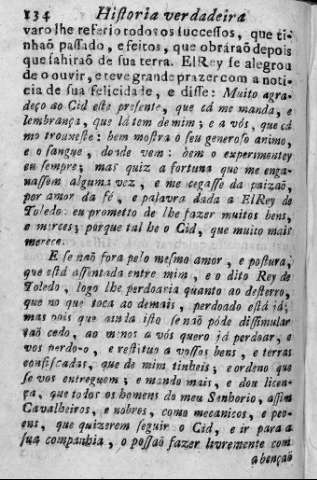 134 Historia verdadeira
varo lhe referio todos os successos, que ti-
nhaõ passado, e feitos, que obráraõ depois
que sahiraõ de sua terra. ElRey se alegrou
de o ouvir, e teve grande prazer com a noti-
cia de sua felicidade, e disse: Muito agra-
deço ao Cid este presente, que cá me manda, e
lembrança, que lá tem de mim; e a vós, que cá
mo trouxeste: bem mostra o seu generoso animo,
e o sangue, donde vem: bem o experimentey
eu sempre; mas quiz a fortuna que me enga-
nassem alguma vez, e me cegasse da paixaõ,
por amor da fé, e palavra dada a ElRey de
Toledo: eu prometto de lhe fazer muitos bens,
e merces; porque tal he o Cid, que muito mais
merece.
E se naõ fora pelo mesmo amor, e postura,
que está assentada entre mim, e o dito Rey de
Toledo, logo lhe perdoaria quanto ao desterro,
que no que toca ao demais, perdoado está já;
mas pois que ainda isto se naõ póde dissimular
taõ cedo, ao menos a vós quero já perdoar, e
vos perdo-o, e restituo a vossos bens, e terras
confiscadas, que de mim tinheis; e ordeno que
se vos entreguem; e mando mais, e dou licen-
ça, que todos os homens do meu Senhorio, assim
Cavalheiros, e nobres, como mecanicos, e peo-
ens, que quizerem seguir o Cid, e ir para a
sua companhia, o possaõ fazer livremente com
a bençaõ